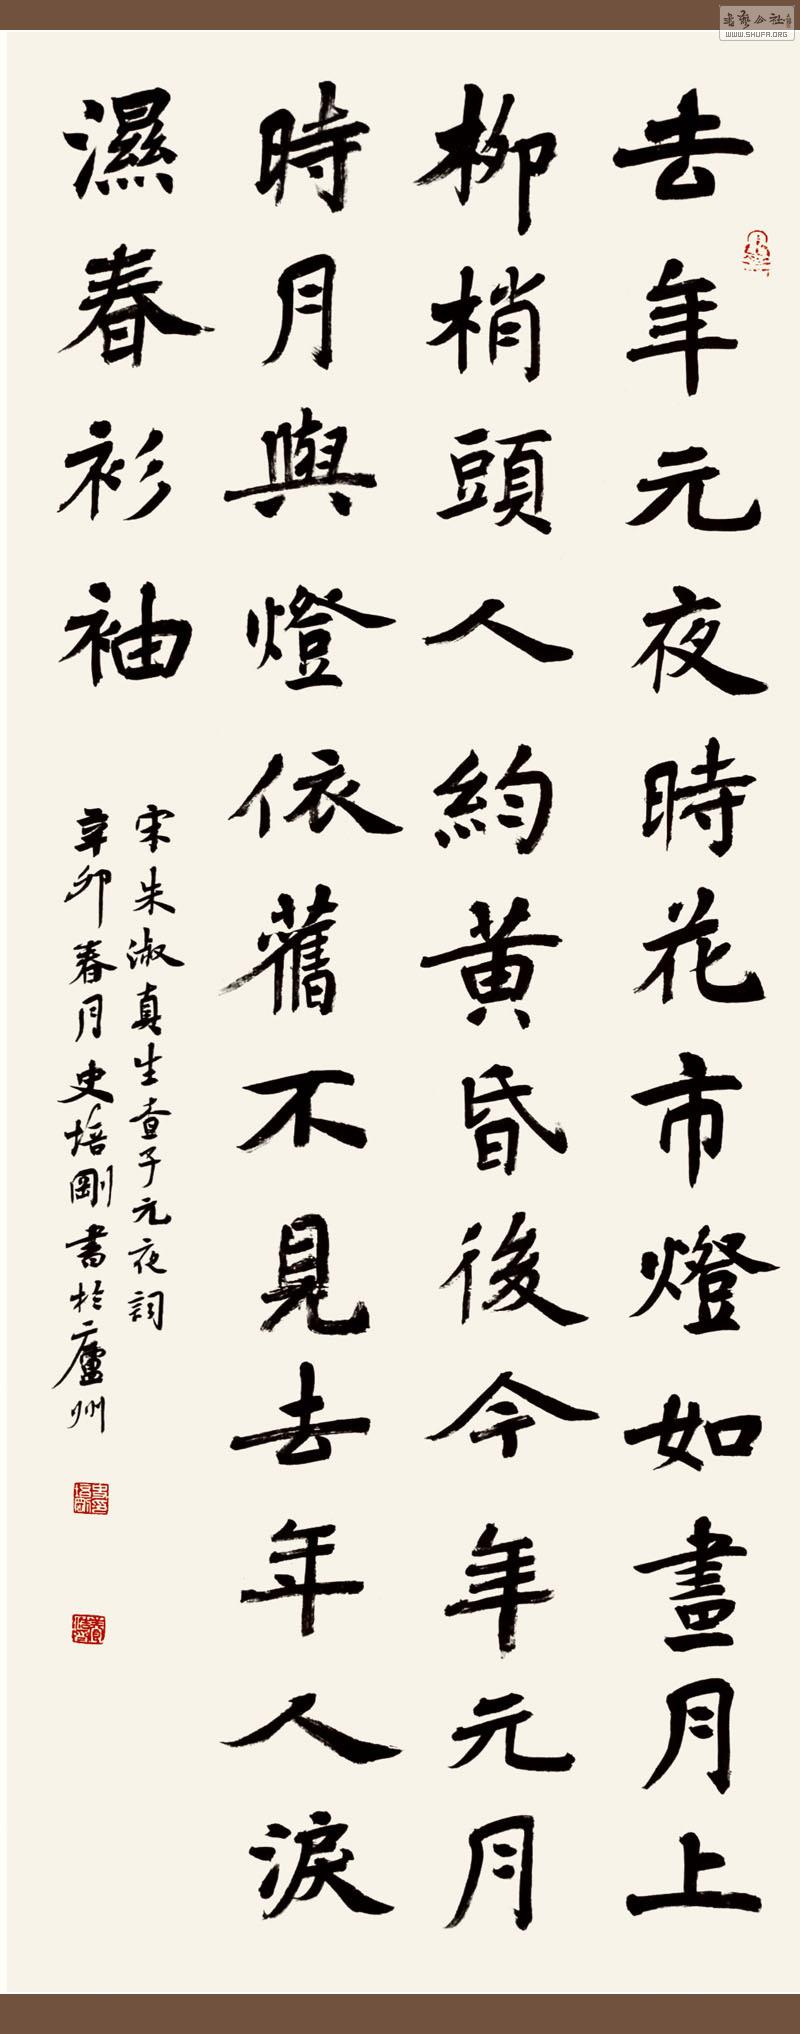 去年元夜時花市燈如晝月上
柳梢頭人約黄昏後今年元月
時月與燈依舊不見去年人淚
濕春衫袖
宋朱淑真生查子元夜詞
辛卯春月史培剛書於廬州
書藝公社
WWW.SHUFA.ORG